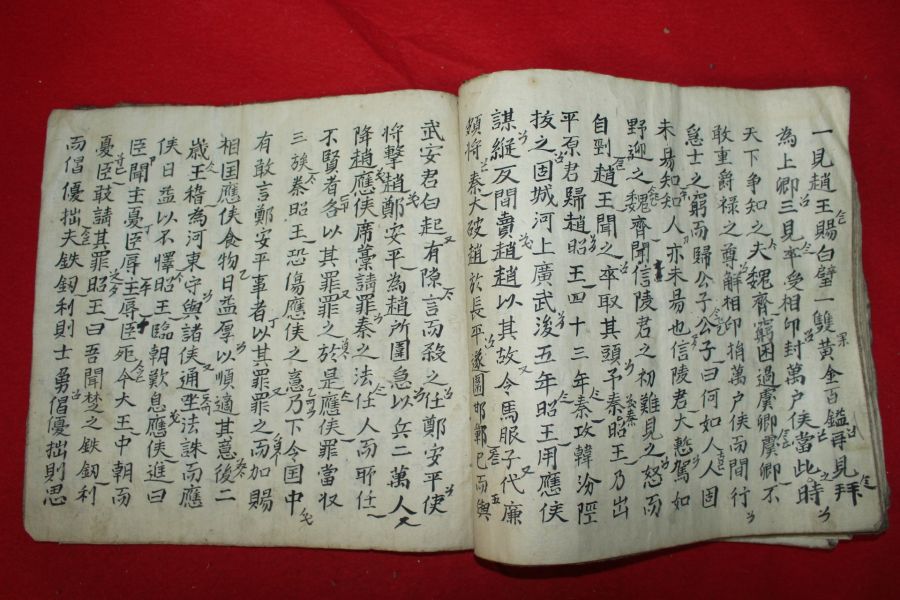 一見趙王賜白璧一雙黃金百鎰再見拜
為上卿三見卒受相印封萬户侯當此時
天下争知之夫魏齊窮困過虞卿虞卿不
敢重爵祿之尊解相印捎萬户侯而間行
急士之窮而歸公子公子曰何如人人固
未易知知人亦未易也信陵君大慙駕如
野迎之魏齊聞信陵君之初難見之怒而
自剄趙王聞之卒取其頭予秦昭王乃出
平原君歸趙昭王四十三年秦攻韓汾陘
拔之因城河上廣武後五年昭王用應侯
謀縱反間賣趙趙以其故令馬服子代廉
頗將秦大破趙於長平遂圍邯鄲已而與
武安君白起有隙言而殺之任鄭安平使
將擊趙鄭安平為趙所圍急以兵二萬人
降趙應侯席藁請罪秦之法任人而所任
不賢者各以其罪罪之於是應侯罪當収
三族秦昭王恐傷應侯之意乃下令国中
有敢言鄭安平事者以其罪罪之而加賜
相国應侯食物日益厚以順適其意後二
歲王稽為河東守與諸侯通坐法誅而應
侯日益以不懌昭王臨朝歎息應侯進曰
臣聞主憂臣辱主辱臣死今大王中朝而
憂臣敢請其罪昭王曰吾聞楚之鉄釰利
而倡優拙夫鉄釰利則士勇倡優拙則思